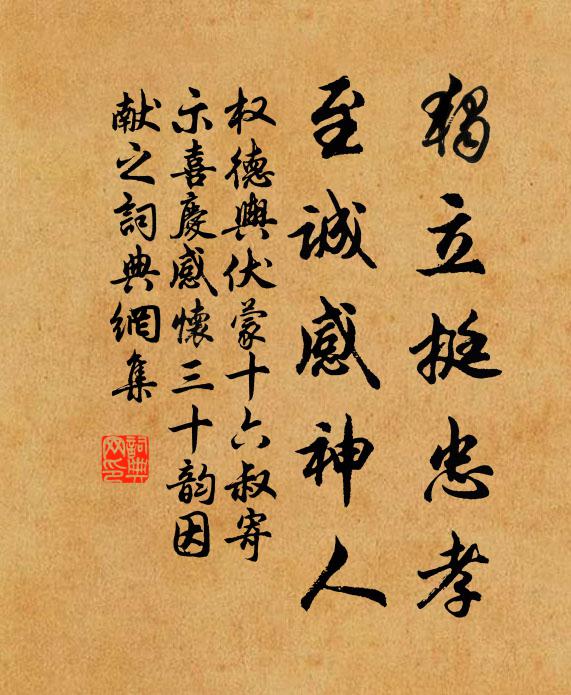 獨立挺忠孝
至誠感神人
权德輿伏蒙十六叔寄
示喜慶感懷三十韵因
献之詞典網集
詞典网印